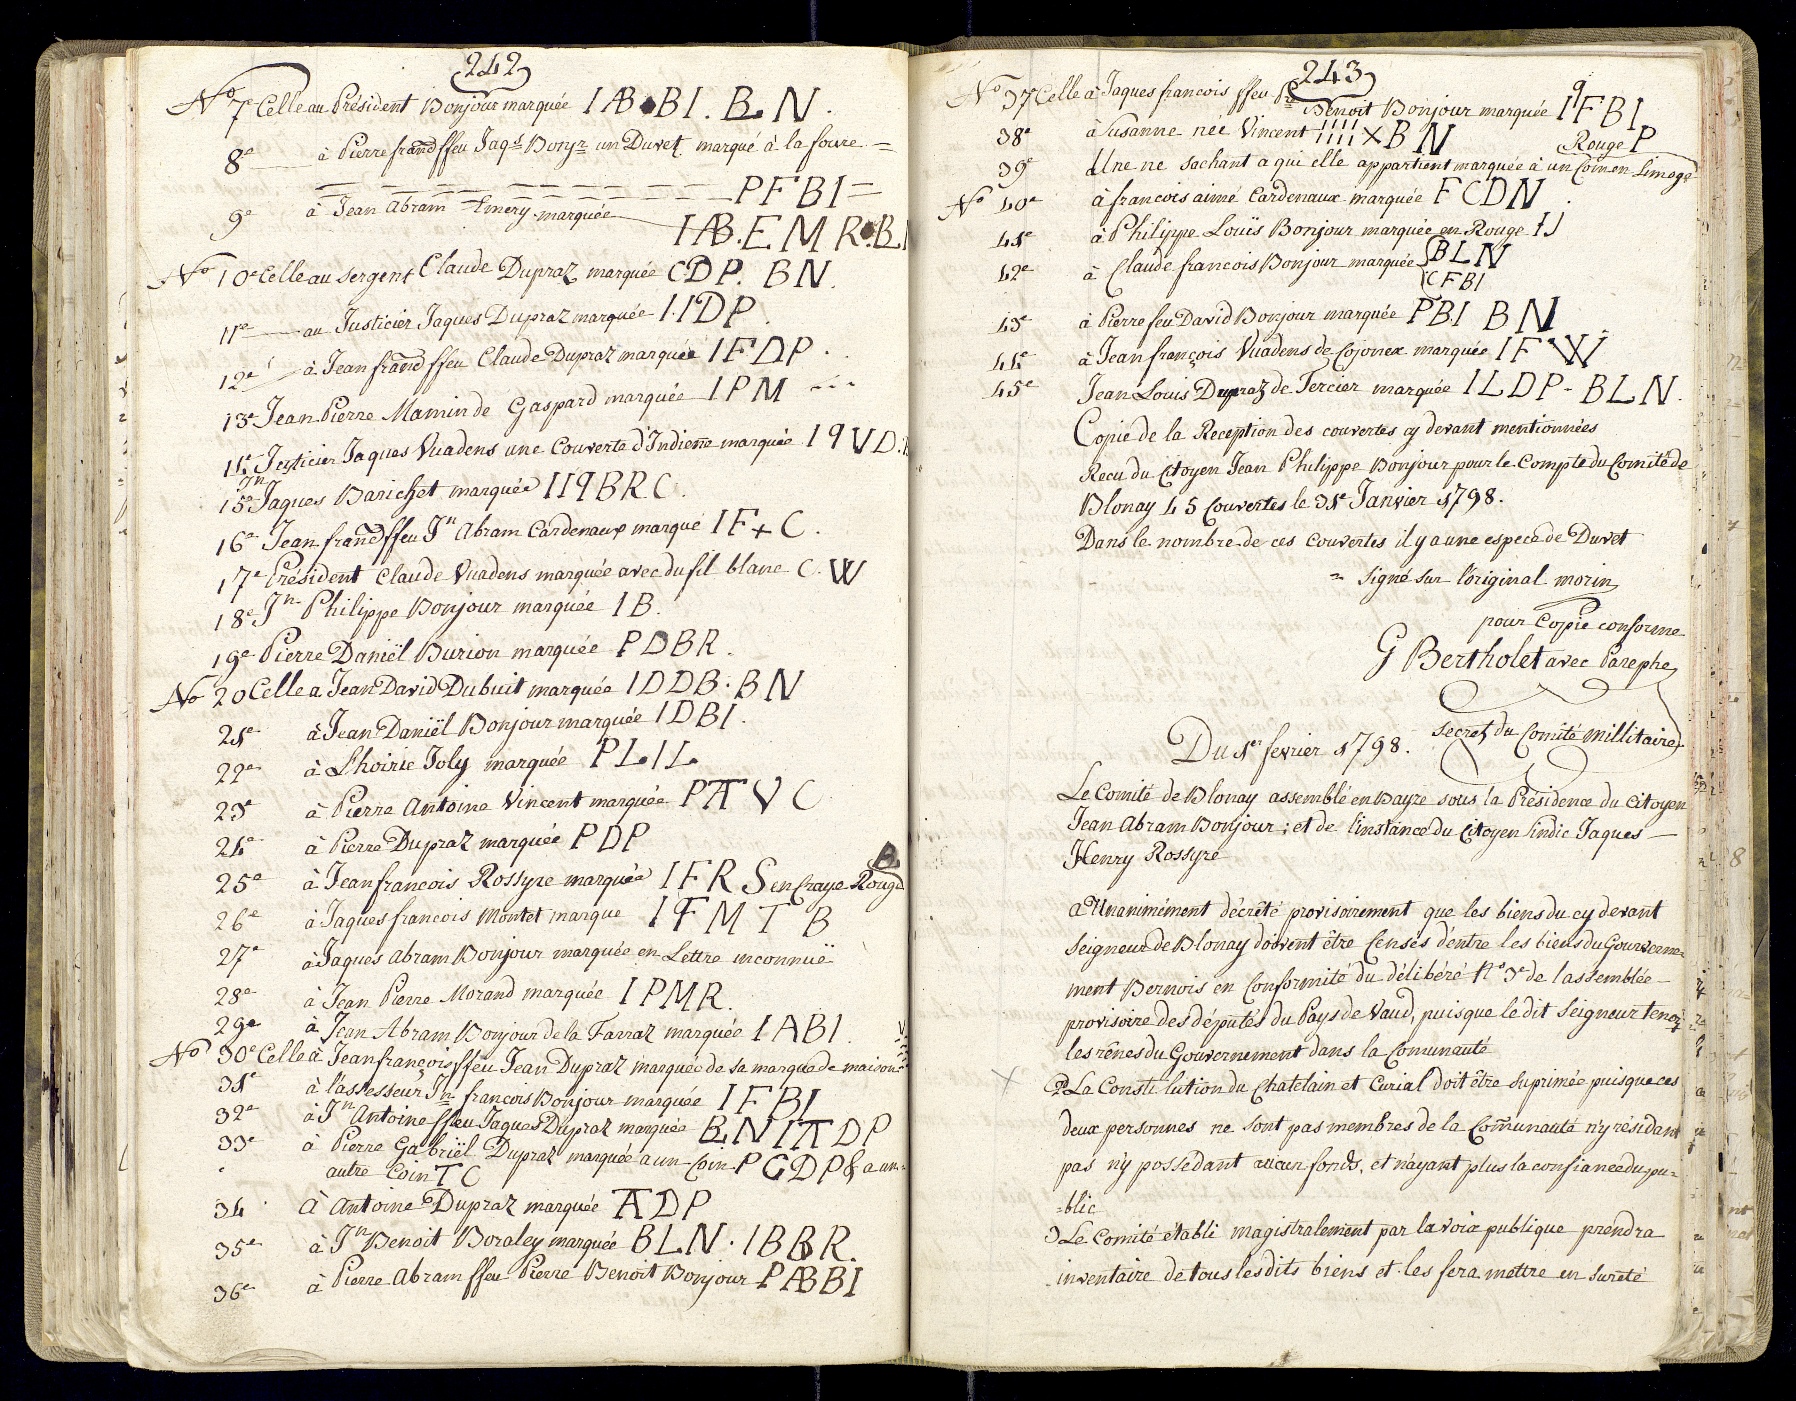 242
No 7e Celle au Président Bonjour marquée IAB BI. BLN.
8e à Pierre frand ffeu Jaqs Bonjr un Duvet marqué à la foure =
PFBI =
9e à Jean Abram Emery marquée
IAB. EMR. BL
No 10e Celle au sergent Claude Dupraz marquée CDP. BN.
11e au Justicier Jaques Dupraz marquée IIDP.
12e à Jean frand ffeu Claude Dupraz marquée IFDP.
13e Jean Pierre Mamin de Gaspard marquée IPM
14e Justicier Jaques Vuadens une Couverte d'Indiene marquée I9VD.
15e Jaques Barichet marquée II9BRC.
16e Jean frand ffeu Jn Abram Cardenaux marqué IF+C.
17e Président Claude Vuadens marquée avec du fil blanc C. W
18e Jn Philippe Bonjour marquée IB.
19e Pierre Daniël Burion marquée PDBR.
No 20 Celle a Jean David Dubuit marquée IDDB. BN
21e à Jean Daniël Bonjour marquée IDBI.
22e à Lhoirie Joly marquée PLIL
23e à Pierre Antoine Vincent marquée PAVC
24e à Pierre Dupraz marquée PDP
25e à Jean francois Rossyre marquée IFRS en Craye Rouge
26e à Jaques francois Montet marque IFMTB
27e à Jaques Abram Bonjour marquée en Lettre inconnuë
28e à Jean Pierre Morand marquée IPMR.
29e à Jean Abram Bonjour de la Farraz marquée IABI.
No 30e Celle à Jean françois ffeu Jean Dupraz marquée de sa marque de maison
31e à l'assesseur Jn francois Bonjour marquée IFBI
32e à Jn Antoine ffeu Jaques Dupraz marquée BLN IADP
33e à Pierre Gabriël Dupraz marquée a un Coin PGDP & a un =
autre Coin TC
34 à Antoine Dupraz marquée ADP
35e à Jn Benoit Boraley marquée BLN. IBBR.
36e à Pierre Abram ffeu Pierre Benoit Bonjour PABBI
243
No 37 Celle à Jaques francois ffeu Pre Benoit Bonjour marquée I9FBI
38e à Susanne née Vincent IIII×BN
Rouge P
39e Une ne sachant a qui elle appartient marquée à un Coin en Limoge
No 40e à francois aimé Cardenaux marquée FCDN.
41e à Philippe Louïs Bonjour marquée en Rouge IJ
42e à Claude francois Bonjour marquée BLN
CFBI
43e à Pierre feu David Bonjour marquée PBI BN
44e à Jean françois Vuadens de Cojonex marquée IFW.
45e Jean Louis Dupraz de Tercier marquée ILDP - BLN.
Copie de la Reception des couvertes cy devant mentionnées
Recu du Citoyen Jean Philippe Bonjour pour le Compte du Comité de
Blonay 45 Couvertes le 31e Janvier 1798.
Dans le nombre de ces couvertes il y a une espece de Duvet
= signé sur l'original morin
pour Copie conforme
G Bertholet avec Parephe
Secret du Comité millitaire
Du 1er fevrier 1798.
Le Comité de Blonay assemblé en Bayze sous la Présidence du Citoyen
Jean Abram Bonjour; et de l'instance du Citoyen Sindic Jaques —
Henry Rossyre
a Unanimément décrété provisoirement que les biens du cy devant
Seigneur de Blonay doivent être Censés d'entre les biens du Gouverne=
ment Bernois en Conformité du délibéré No 3e de l'assemblée —
provisoire des députés du Pays de Vaud, puisque le dit Seigneur tenoit
les rênes du Gouvernement dans la Comunauté
2 La Constitution du Chatelain et Curial doit être suprimée puisque ces
deux personnes ne sont pas membres de la Comunauté n'y résidant
pas n'y possedant aucun fonds, et n'ayant plus la confiance du pu=
=blic
3 Le Comité établi magistralement par la voix publique prendra
inventaire de tous les dits biens et les fera mettre en sureté